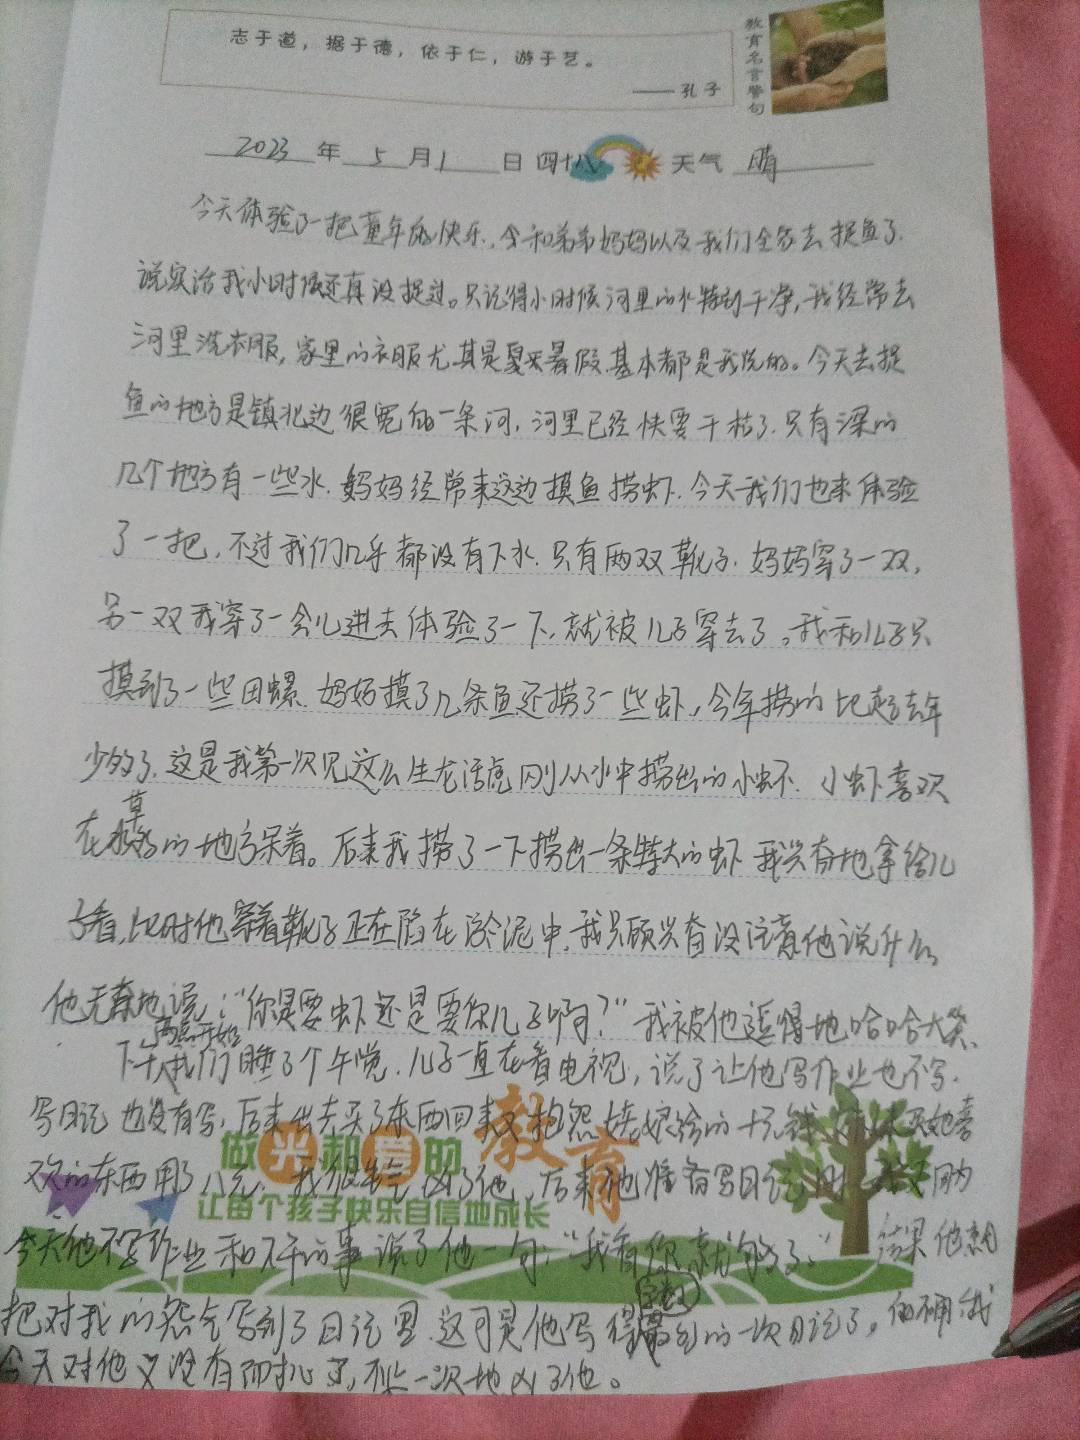 志于道，据于德，依于仁，游于艺。
——孔子
教育名言警句
2023年5月1日 四十八 天气 晴
今天体验了一把童年的快乐，今和弟弟妈妈以及我们全家去捉鱼了.
说实话我小时候还真没捉过。只记得小时候河里的水特别干净，我经常去
河里洗衣服，家里的衣服尤其是夏天暑假.基本都是我洗的。今天去捉
鱼的地方是镇北边很宽的一条河，河里已经快要干枯了.只有深的
几个地方有一些水.妈妈经常来这边摸鱼捞虾.今天我们也来体验
了一把，不过我们几乎都没有下水.只有两双靴子.妈妈穿了一双，
另一双我穿了一会儿进去体验了一下，就被儿子穿去了。我和儿子只
摸到了一些田螺.妈妈摸了几条鱼还捞了一些虾，今年捞的比起去年
少多了.这是我第一次见这么生龙活虎刚从水中捞出的小虾.小虾喜欢
在水草多的地方呆着。后来我捞了一下捞出一条特大的虾 我兴奋地拿给儿
子看，此时他穿着靴子正在陷在淤泥中，我只顾兴奋没注意他说什么
他无奈地说：“你是要虾还是要你儿子啊？”我被他逗得地哈哈大笑.
下午我们睡了个午觉.儿子一直在看电视，说了让他写作业也不写.
写日记也没有写，后来出去买了东西回来又抱怨姑娘给的十元钱
欢的东西用了八元.我很生气凶了他，后来他准备写日记
今天他不写作业和不干的事说了他一句：“我看你就够了。”结果他就
把对我的怨气写到了日记里.这可是他写得字数最多的一次日记了，
今天对他又没有，不止一次地凶了他。
做光和爱的教育
让每个孩子快乐自信地成长